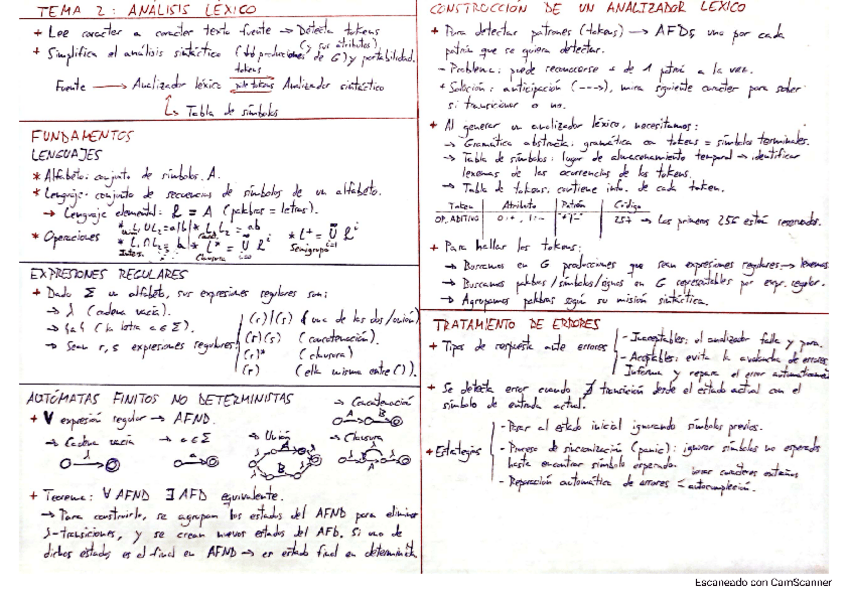 TEMA 2: ANÁLISIS LÉXICO
+ Lee caracter a caracter texto fuente → Detecta tokens
(y sus atributos)
+ Simplifica el análisis sintáctico ( producciones de G) y portabilidad.
tokens
Fuente → Analizador léxico pide tokens Analizador sintáctico
↳ Tabla de símbolos
FUNDAMENTOS
LENGUAJES
* Alfabeto: conjunto de símbolos. A.
* Lenguaje: conjunto de secuencias de símbolos de un alfabeto.
→ Lenguaje elemental: L = A (palabras = letras).
* Operaciones
Clausura
Semigrupo
EXPRESIONES REGULARES
+ Dado Σ un alfabeto, sus expresiones regulares son:
→ λ (cadena vacía).
→ {a} (la letra a ∈ Σ).
→ Sean r, s expresiones regulares
(r)|(s) (una de las dos/unión)
(r)(s) (concatenación).
(r)* (clausura)
(r) (ella misma entre ()).
AUTÓMATAS FINITOS NO DETERMINISTAS
+ ∀ expresión regular → AFND.
→ Concatenación
A B
→ Cadena vacía → a ∈ Σ → Unión → Clausura
λ a A B λ A
+ Teorema: ∀ AFND ∃ AFD equivalente.
→ Para construirlo, se agrupan los estados del AFND para eliminar
λ-transiciones, y se crean nuevos estados del AFD. Si uno de
dichos estados es el final en AFND → es estado final en determinista
CONSTRUCCIÓN DE UN ANALIZADOR LÉXICO
+ Para detectar patrones (tokens) → AFDs, uno por cada
patrón que se quiera detectar.
- Problema: puede reconocerse + de 1 patrón a la vez.
+ Solución: anticipación (--->), mira siguiente carácter para saber
si transicionar o no.
+ Al generar un analizador léxico, necesitamos:
→ Gramática abstracta, gramática con tokens = símbolos terminales.
→ Tabla de símbolos: lugar de almacenamiento temporal → identificar
lexemas de las ocurrencias de los tokens.
→ Tabla de tokens, contiene info. de cada token.
Token Atributo Patrón Código
OP. ADITIVO 0:+, 1:- "+"|"-" 257 → Los primeros 256 están reservados.
+ Para hallar los tokens:
→ Buscamos en G producciones que sean expresiones regulares → lexemas
→ Buscamos palabras/símbolos/signos en G representables por expr. regular.
→ Agrupamos palabras según su misión sintáctica.
TRATAMIENTO DE ERRORES
+ Tipos de respuesta ante errores
- Inaceptables: el analizador falla y para.
- Aceptables: evita la avalancha de errores
Informa y repara el error automáticamente
+ Se detecta error cuando ∄ transición desde el estado actual con el
símbolo de entrada actual.
+ Estrategias
- Pasar al estado inicial ignorando símbolos previos.
- Proceso de sincronización (panic): ignorar símbolos no esperados
hasta encontrar símbolo esperado.
- Reparación automática de errores = autocompleción.
caracteres extraños
Escaneado con CamScanner